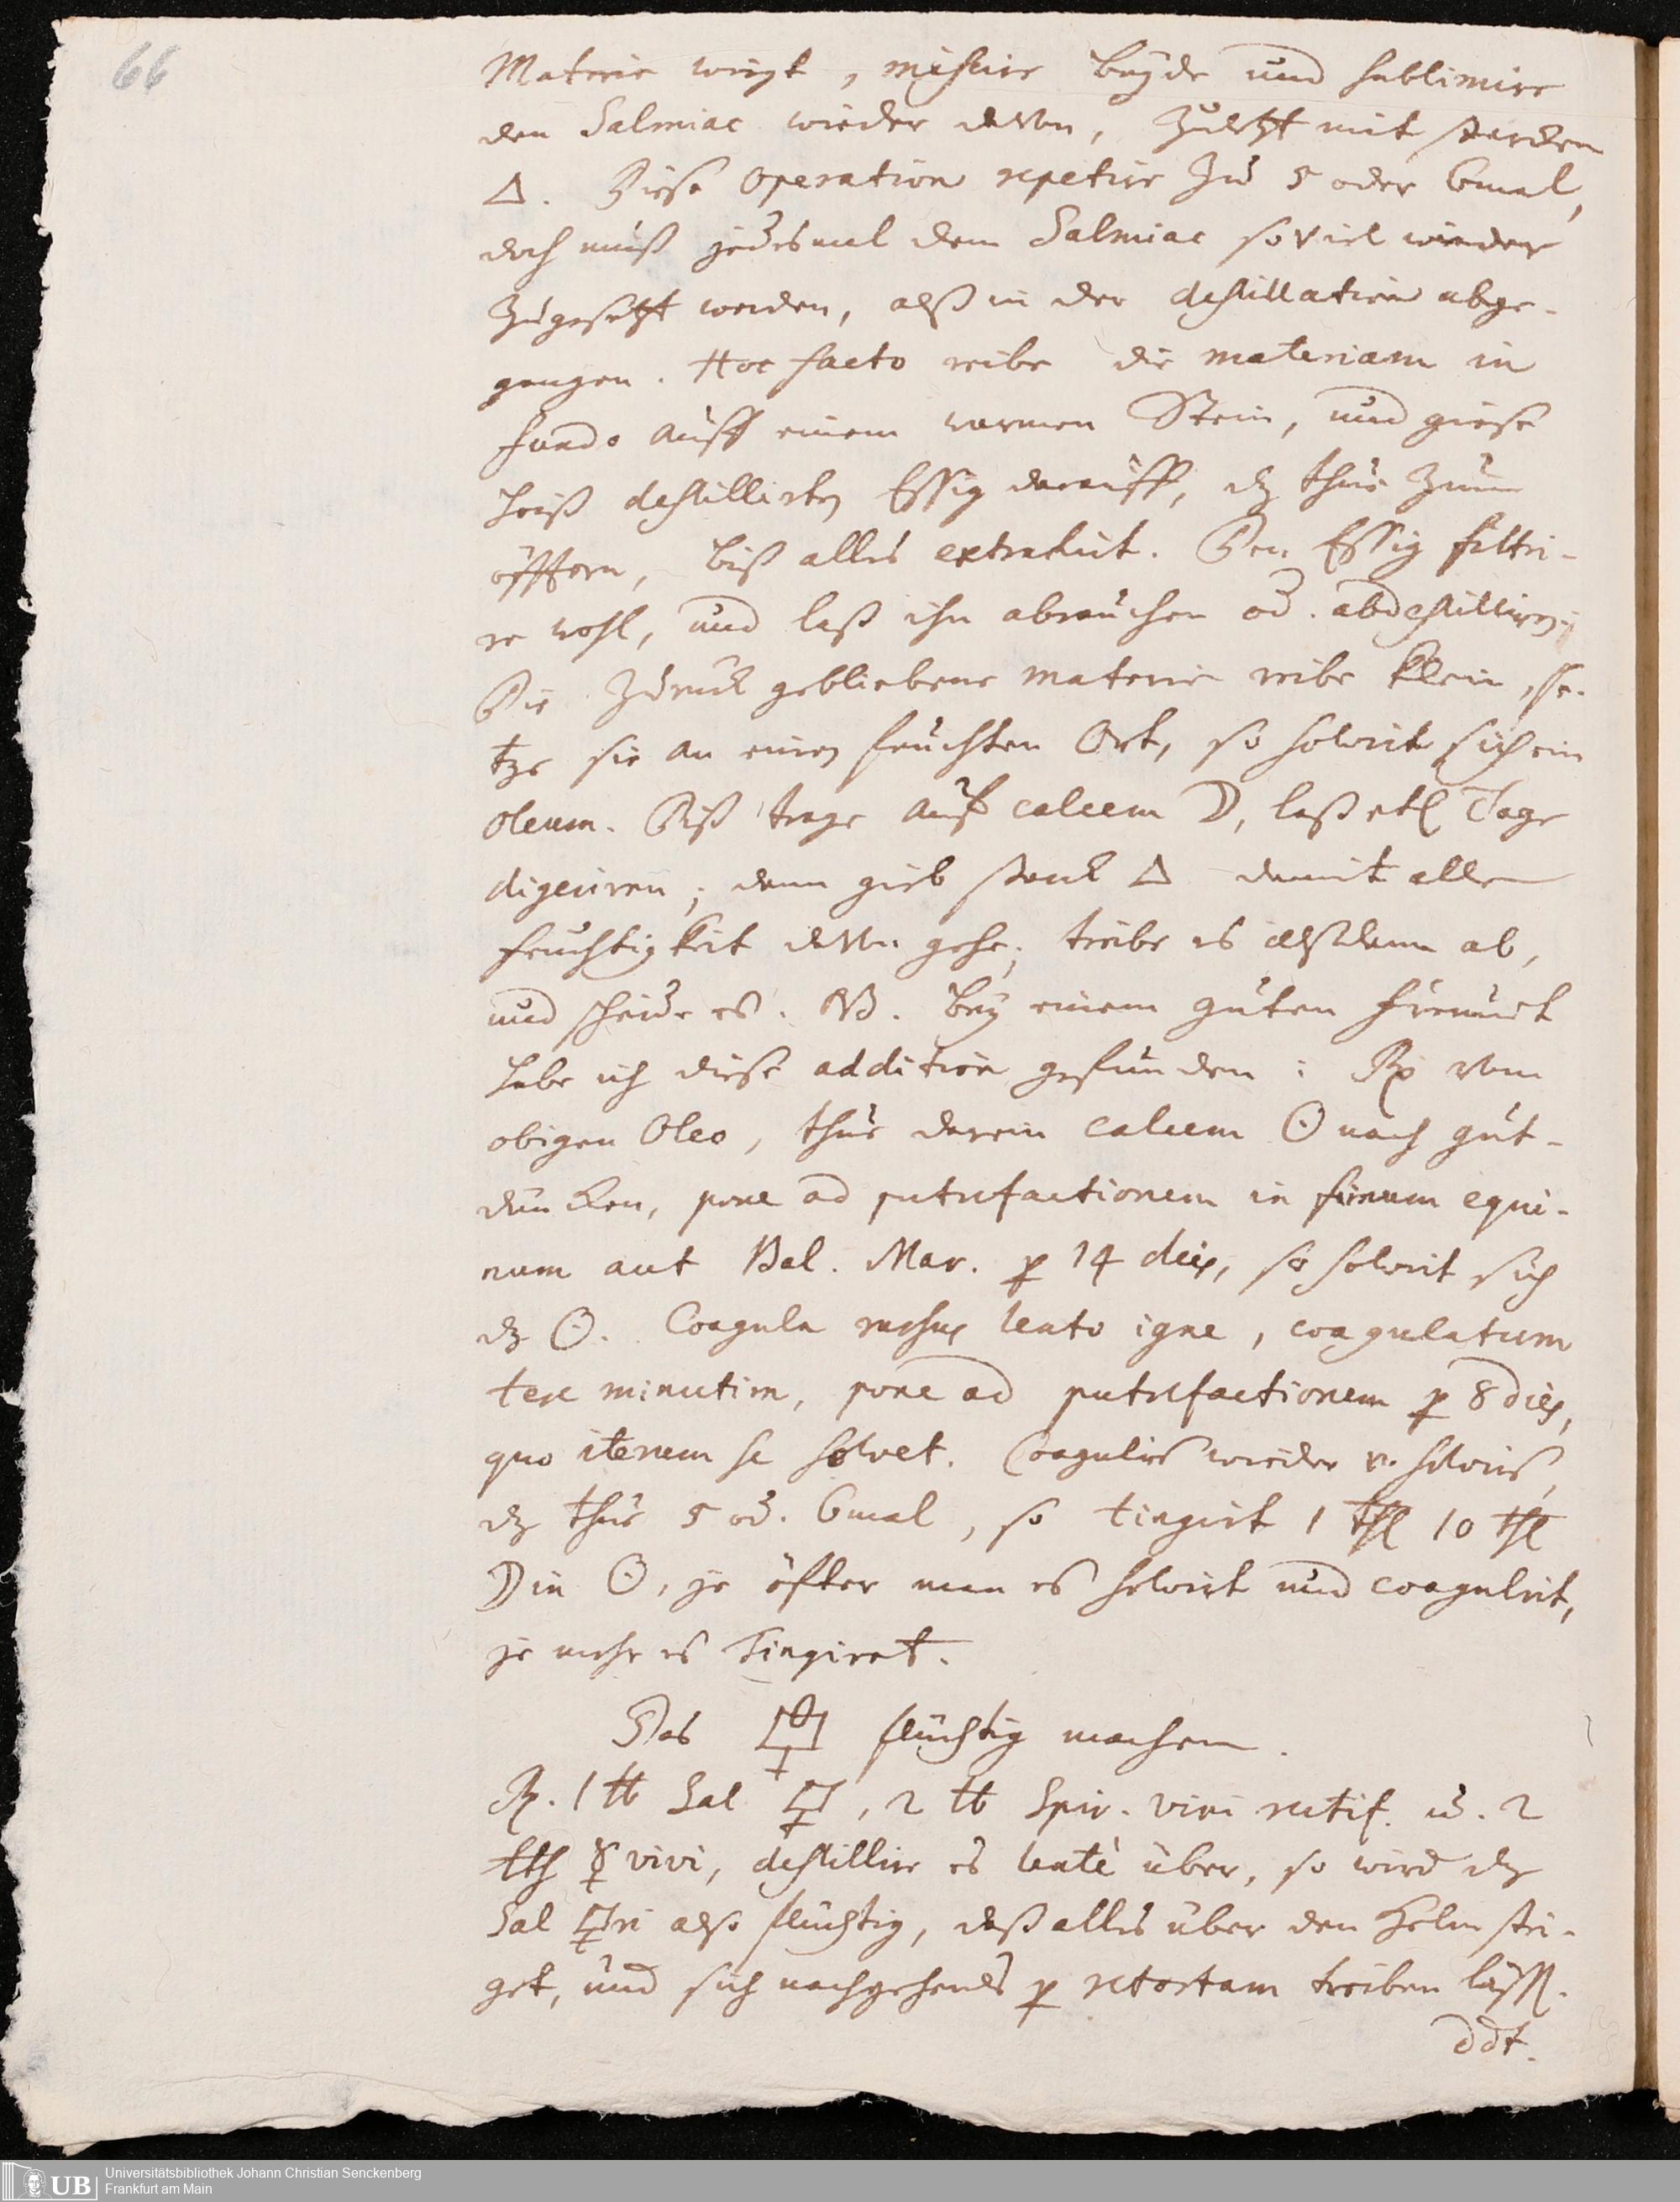 66
Materie wiegt, miscire beyde und sublimire
den Salmiac wieder davon, zuletzt mit starcken
🜂. Diese Operation repetire zu 5 oder 6mal,
doch muß jedesmal dem Salmiac soviel wieder
zugesetzt werden, alß in der destillation abge-
gangen. Hoc facto reibe die materiam in
fundo auff einem warmen Stein, und giese
heiß destillirten Essig darauff, dz thue zum
öfftern, biß alles extrahirt. Den Essig filtri-
re wohl, und laß ihn abrauchen od. abdestilliren;
Die zurück gebliebene materie reibe klein, se-
tze sie an einen feuchten Ort, so solvirt sich ein
oleum. Diß trage auf calcem ☽, laß etl Tage
digeriren; dann gieb starck 🜂 damit alle
feuchtigkeit davon gehe; treibe es alßdann ab,
und scheide es. NB. bey einem guten freund
habe ich diese addition gefunden: ℞ vom
obigen Oleo, thue darein calcem ☉ nach gut-
düncken, pone ad putrefactionem in fimum equi-
num aut Bal. Mar. p 14 dies, so solvirt sich
dz ☉. Coagula rursus lento igne, coagulatum
tere minutim, pone ad putrefactionem p 8 dies,
quo iterum se solvet. Coagulirs wieder u. solvirs,
dz thue 5 od. 6mal, so tingirt 1 thl 10 thl
☽ in ☉, je öfter man es solvirt und coagulirt,
je mehr es Tingiret.
Das 🜿 flüchtig machen.
℞. 1 ℔ Sal 🜿, 2 ℔ Spir. vini rectif. u. 2
℔ 🜍 vivi, destillire es lentè über, so wird dz
Sal 🜿ri also flüchtig, daß alles über den Helm stei-
get, und sich nachgehends p retortam treiben läßt.
ddt.
UB
Universitätsbibliothek Johann Christian Senckenberg
Frankfurt am Main